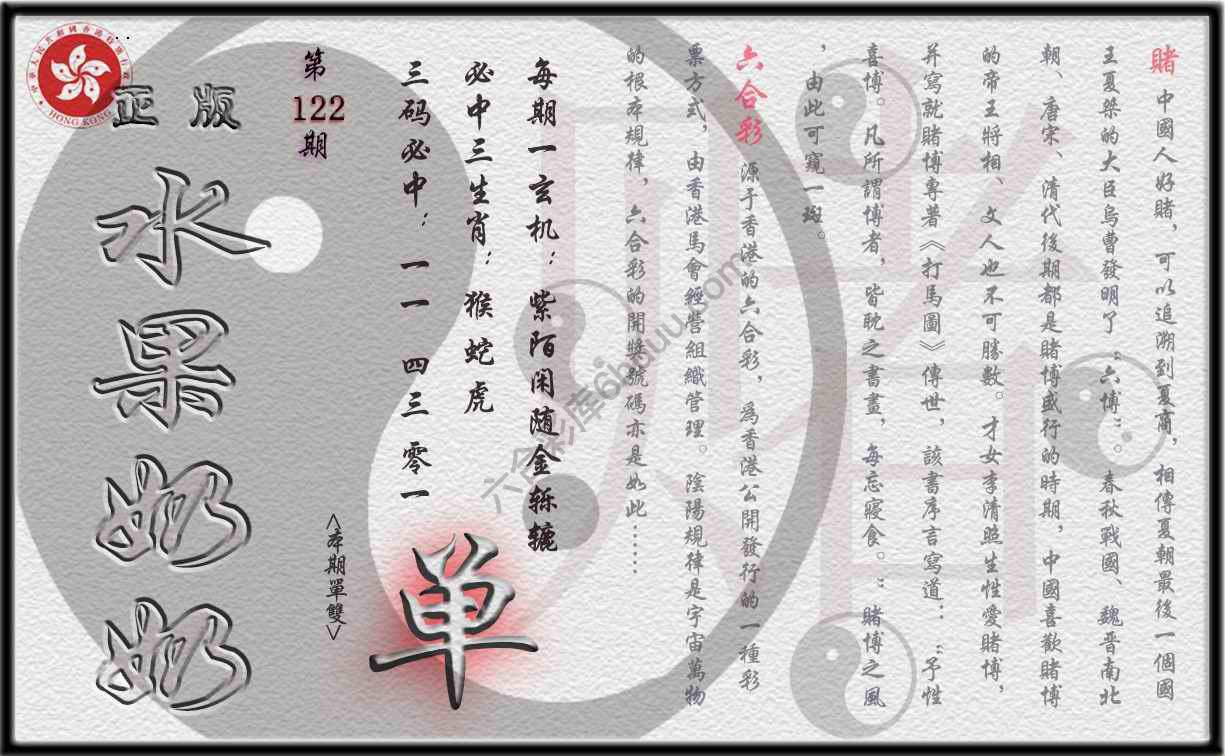 賭 中國人好賭，可以追溯到夏商，相傳夏朝最後一個國
王夏桀的大臣烏曹發明了“六博”。春秋戰國、魏晋南北
朝、唐宋、清代後期都是賭博盛行的時期，中國喜歡賭博
的帝王將相、文人也不可勝數。才女李清照生性愛賭博，
并寫就賭博專著《打馬圖》傳世，該書序言寫道：：“予性
喜博。凡所謂博者，皆耽之書畫，每忘寢食。”賭博之風
，由此可窺一斑。
六合彩 源于香港的六合彩，爲香港公開發行的一種彩
票方式，由香港馬會經營組織管理。陰陽規律是宇宙萬物
的根本規律，六合彩的開獎號碼亦是如此……
每期一玄机：紫陌闲随金轹辘
必中三生肖：猴蛇虎
三码必中：一一 四三 零一
單
<本期單雙>
第
122
期
正版
水果奶奶
HONG KONG
六合彩库6huuu.com